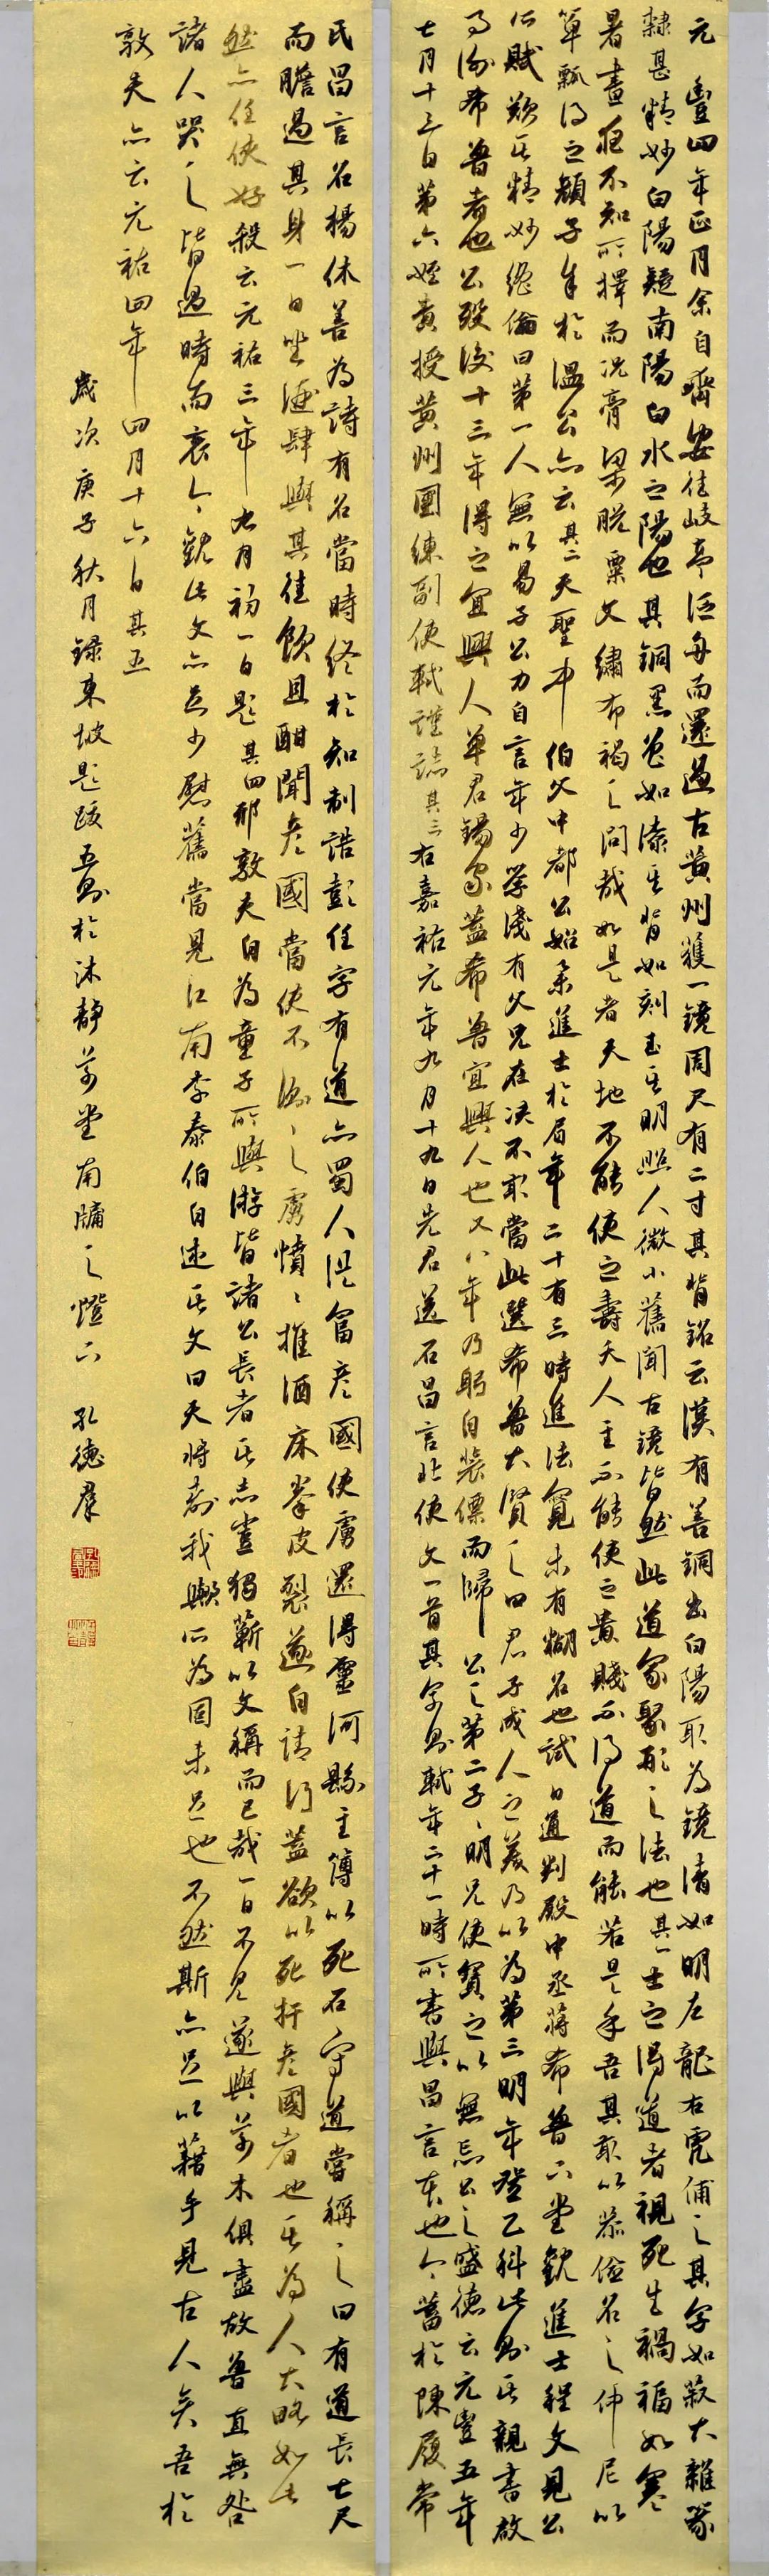 元豐四年正月余自齊安往岐亭泛舟而還過古黃州獲一鏡周尺有二寸其背銘云漢有善銅出白陽取為鏡清如明左龍右虎俌之其字如菽大雜篆
隸甚精妙白陽疑南陽白水之陽也其銅黑色如漆其背如刻玉其明照人微小舊聞古鏡皆然此道家聚形之法也其一士之得道者視死生禍福如寒
暑晝夜不知所擇而況膏粱脫粟文繡布褐之間哉如是者天地不能使之壽夭人主不能使之貴賤不得道而能若是乎吾其敢以恭儉名之仲尼以
簞瓢得之顏子余於溫公亦云其二天聖中伯父中都公始舉進士於眉年二十有三時進法寬未有糊名也試日通判殿中丞蔣希魯下堂觀進士程文見公
所賦歎其精妙絕倫曰第一人無以易子公力自言年少學淺有父兄在決不敢當此選希魯大賢之曰君子成人之美乃以為第三明年登乙科此則其親書故
事謝希魯者也公歿後十三年得之宜興人單君錫家蓋希魯宜興人也又八年乃躬自裝褾而歸公之第二子子明兄使寶之以無忘公之盛德云元豐五年
七月十三日第六姪責授黃州團練副使軾謹誌其三右嘉祐元年九月十九日先君送石昌言北使文一首其字則軾年二十一時所書與昌言本也今蓄於陳履常
氏昌言名楊休善為詩有名當時終於知制誥彭任字有道亦蜀人從富彥國使虜還得靈河縣主簿以死石守道嘗稱之曰有道長七尺
而膽過其身一日坐酒肆與其徒飲且酣聞彥國當使不測之虜憤憤推酒床拳皮裂遂自請行蓋欲以死扞彥國者也其為人大略如此
然亦任俠好殺云元祐三年九月初一日題其四邢敦夫自為童子所與游皆諸公長者其志豈獨蘄以文稱而已哉一日不見遂與草木俱盡故魯直無咎
諸人哭之皆過時而哀今觀此文亦足少慰舊嘗見江南李泰伯自述其文曰天將壽我歟所為固未足也不然斯亦足以藉手見古人矣吾於
敦夫亦云元祐四年四月十六日其五
歲次庚子秋月錄東坡題跋五則於沐靜草堂南牖之燈下 孔德群